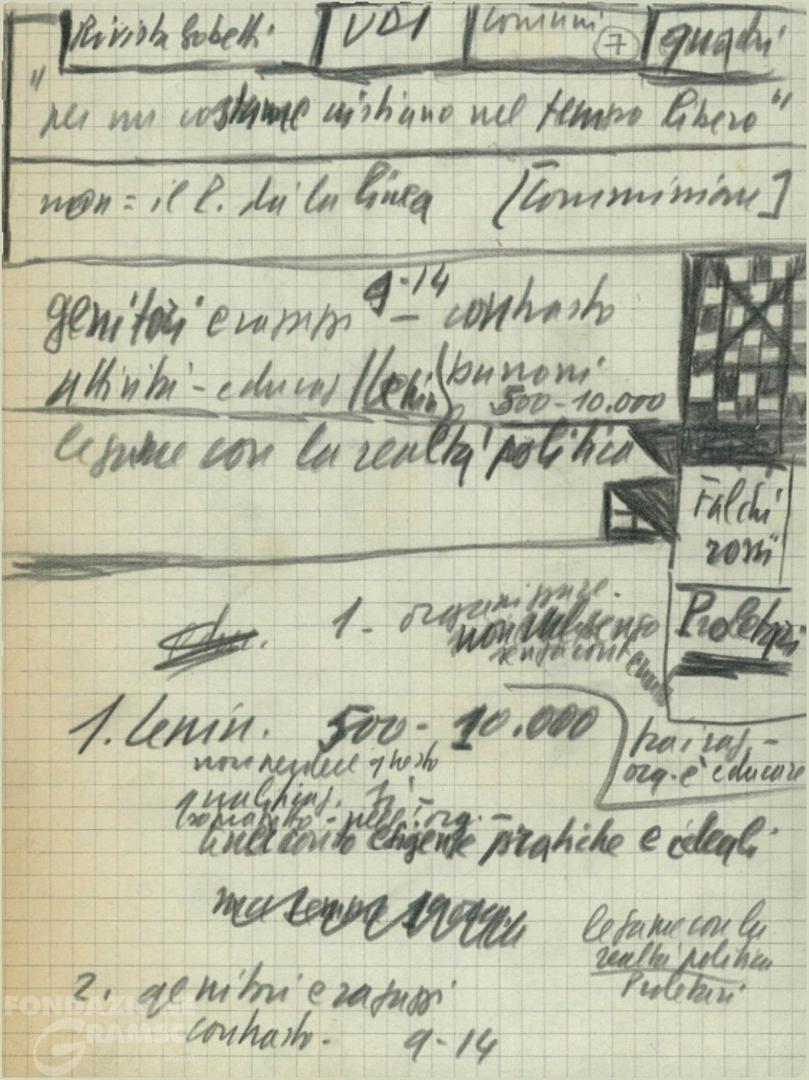 Rivista Gobetti
UDI
Comuni
7
quadri
"per un costume cristiano nel tempo libero"
non = il P. dà la linea [Commissione]
genitori e ragazzi 9-14 - contrasto
attività - educaz // Lenin
500-10.000
legame con la realtà politica
Falchi
rossi
1 - organizzare
non nel senso
Proletari
senza cont
1. Lenin. 500 - 10.000
tra i rag. -
non perdere questo
org. è educare
nell'org. -
tener conto esigenze pratiche e ideali
legame con la
realtà politica
Proletari
2. genitori e ragazzi
contrasto - 9-14
FONDAZIONE
GRAMSCI